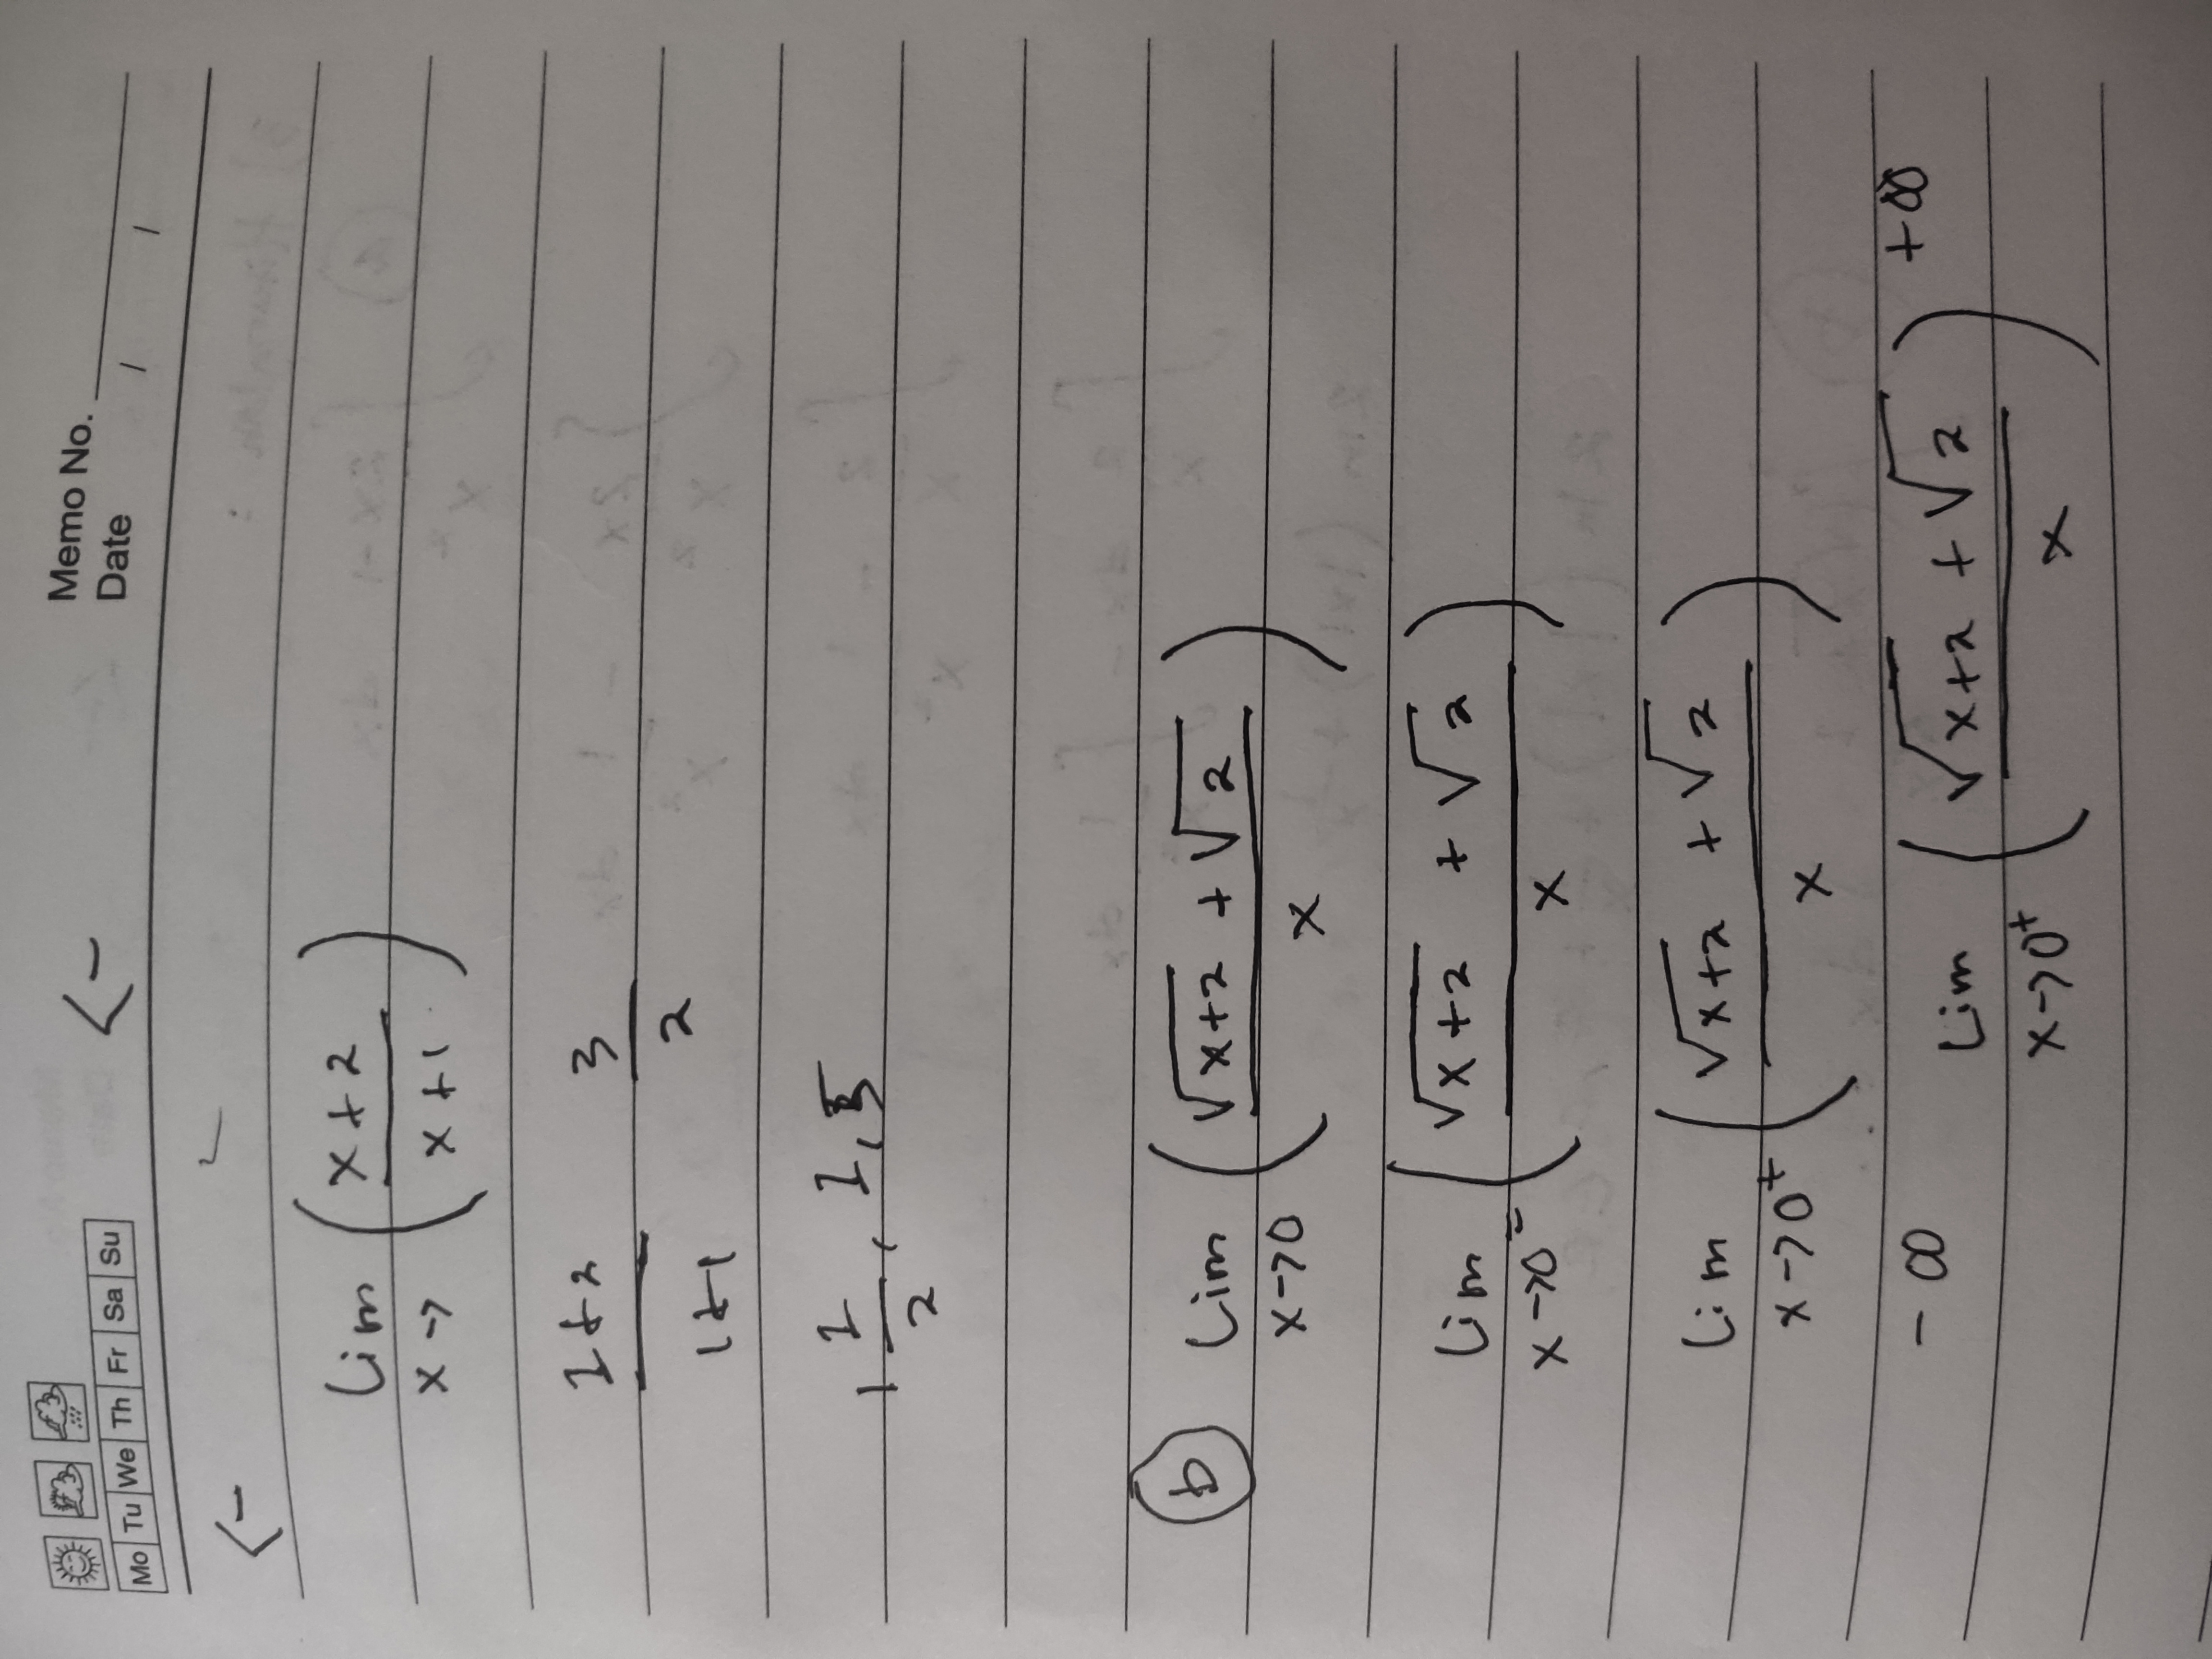 Mo Tu We Th Fr Sa Su
Memo No.
Date / /
<-
<-
lim x-> (x+2 / x+1)
1+2 / 1+1   3 / 2
1 1/2, 1,5
(b) lim x->0 (√x+2 + √2 / x)
lim x->0⁻ (√x+2 + √2 / x)
lim x->0⁺ (√x+2 + √2 / x)
-∞ lim x->0⁺ (√x+2 + √2 / x) +∞